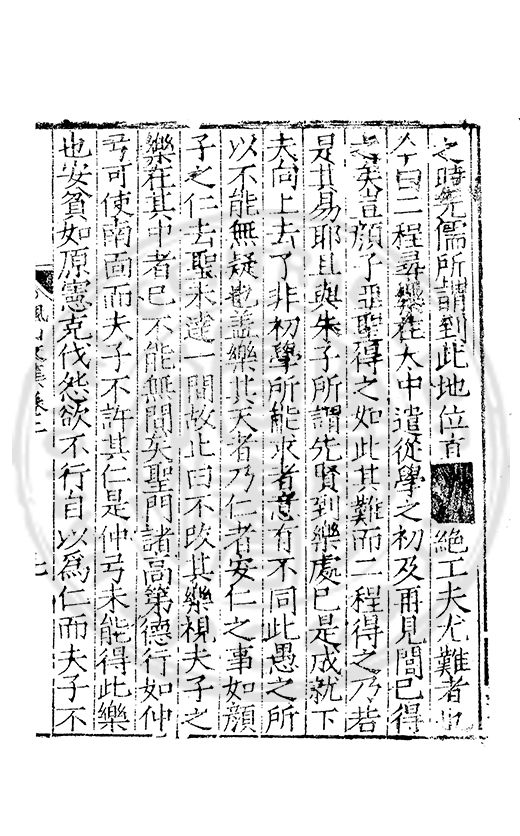 之時先儒所謂到此地位直絕工夫尤難者也
今曰二程尋樂在大中遣從學之初及再見間已得
之矣豈顏子亞聖得之如此其難而二程得之乃若
是其易耶且與朱子所謂先賢到樂處已是成就下
夫向上去了非初學所能求者意有不同此愚之所
以不能無疑也蓋樂其天者乃仁者安仁之事如顏
子之仁去聖未達一間故止曰不改其樂視夫子之
樂在其中者已不能無間矣聖門諸高第德行如仲
弓可使南面而夫子不許其仁是仲弓未能得此樂
也安貧如原憲克伐怨欲不行自以為仁而夫子不
楓山文集卷二
七